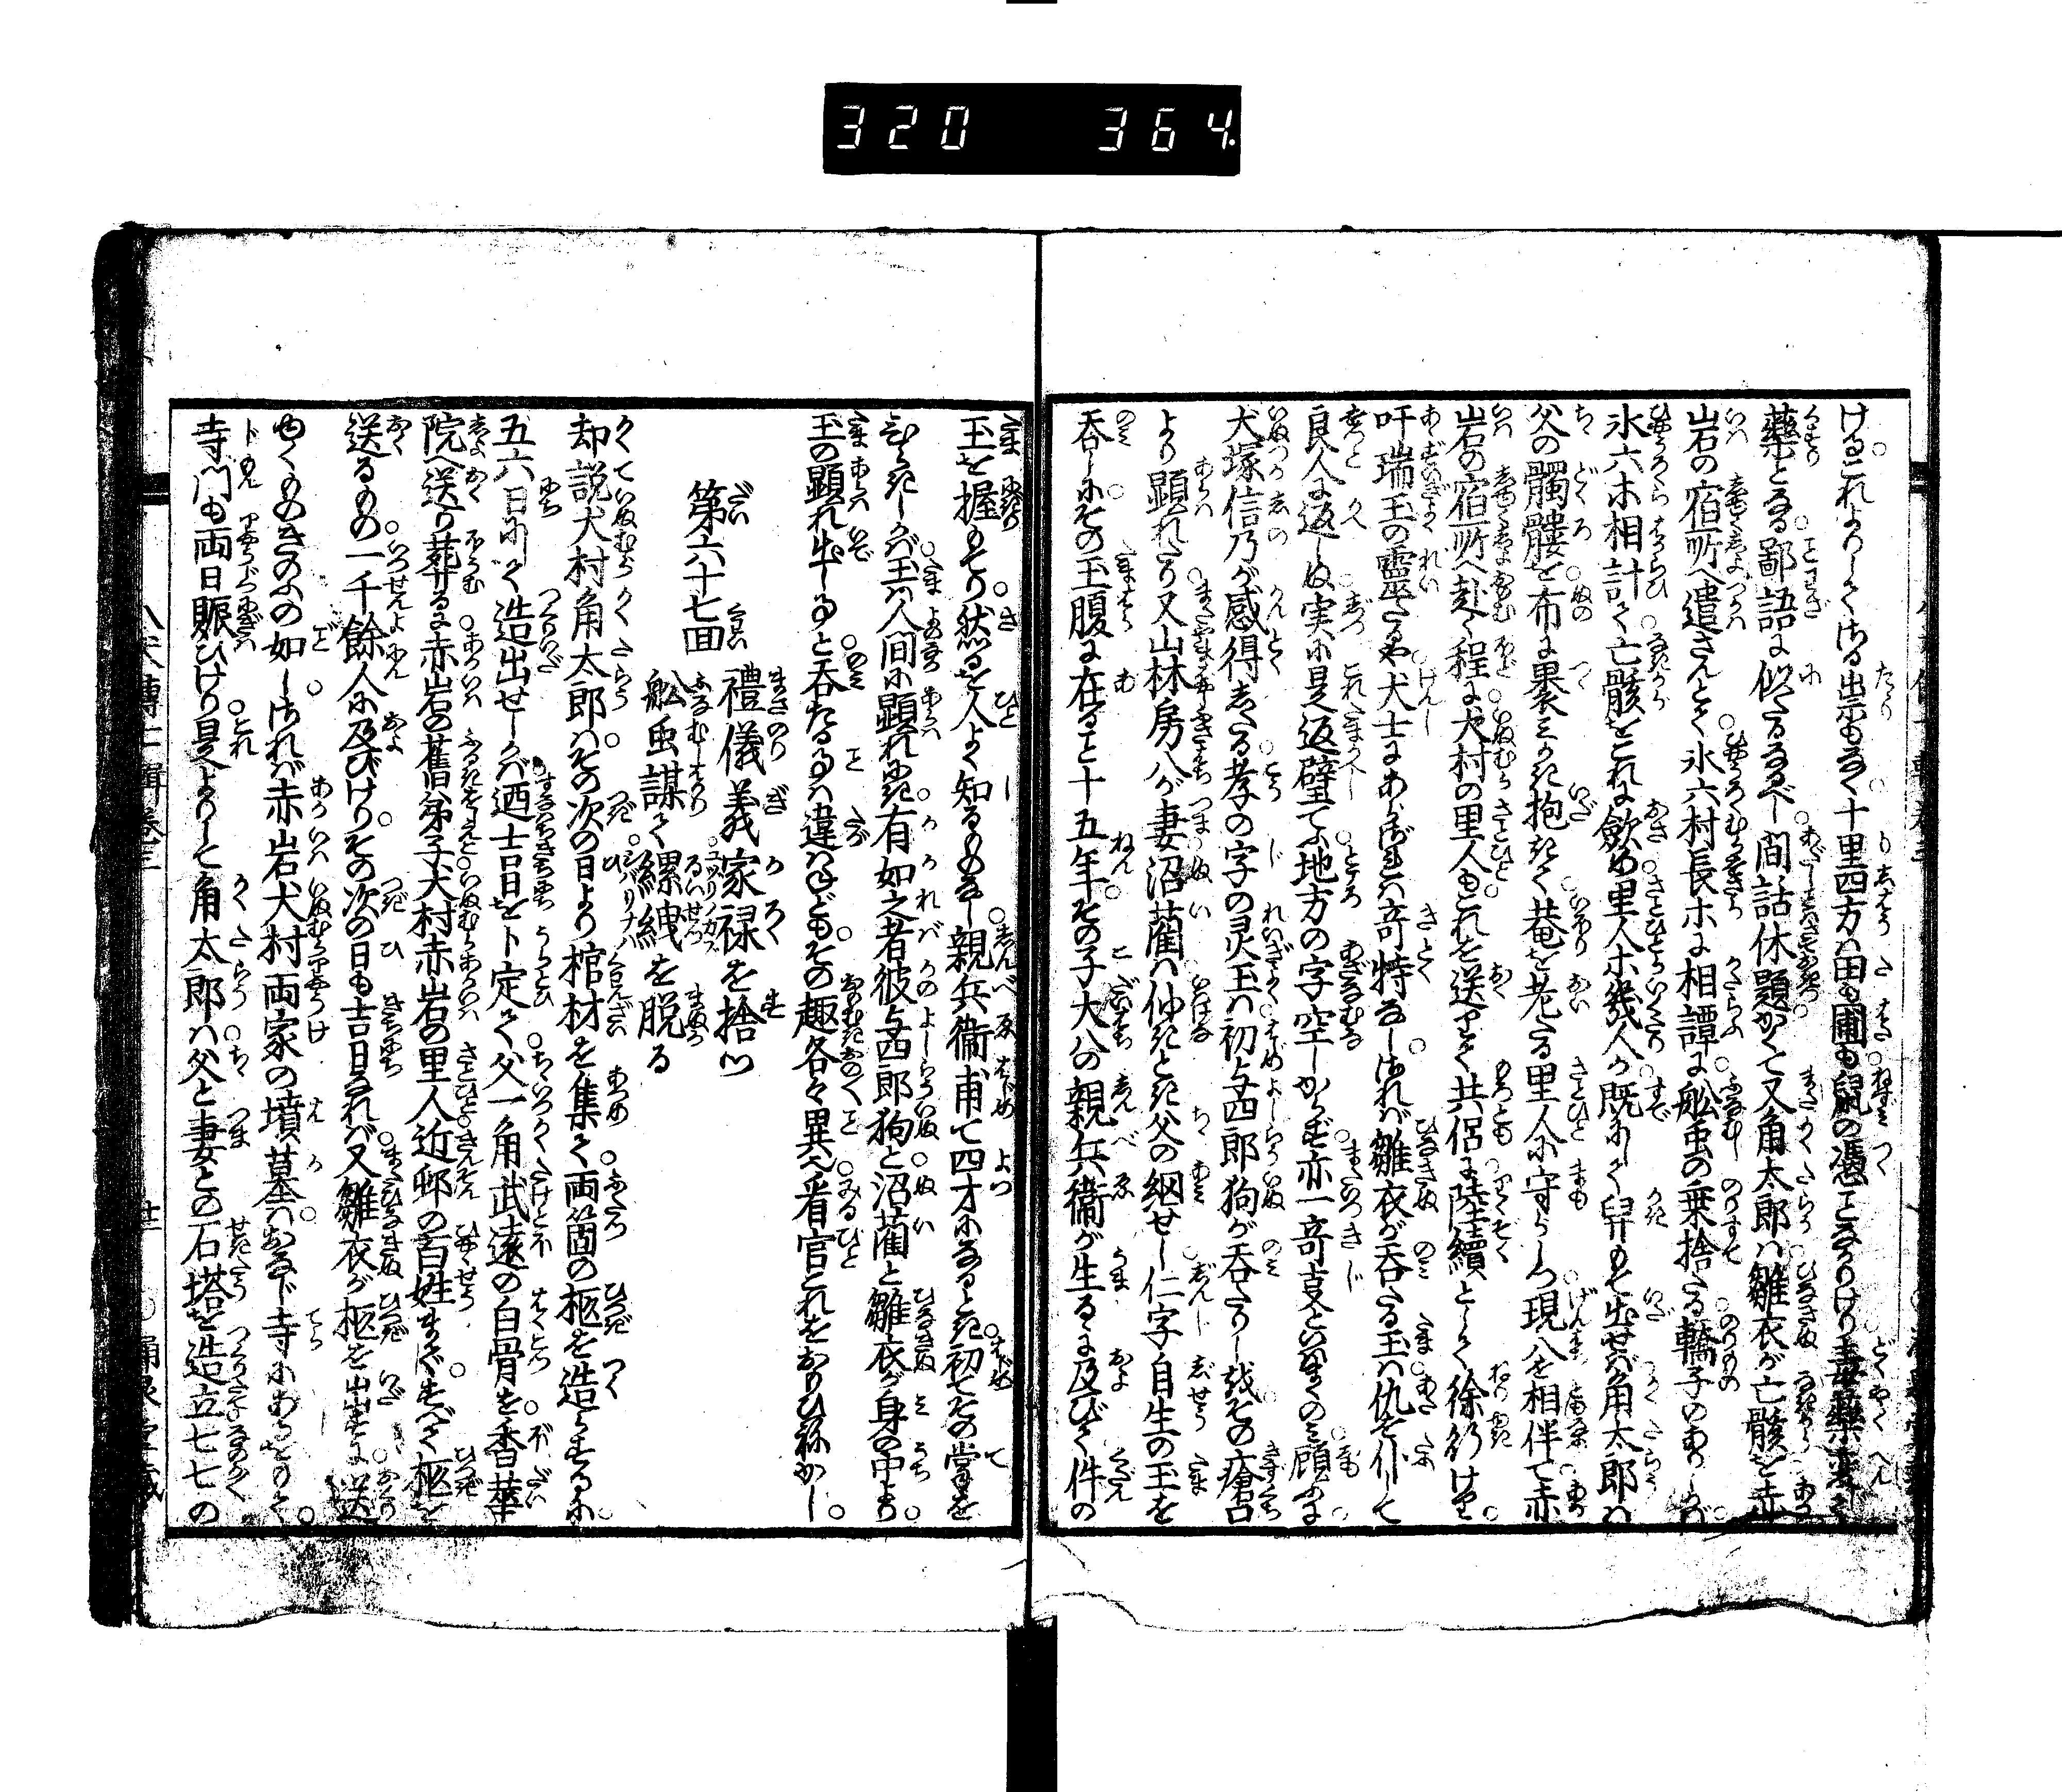 320 364.
ける。これよりして後は出祟もなく。十里四方は田も圃も。鼠の憑ことなかりけり。毒藥変じて
藥となる。鄙語に似たるなるべし。間話休題。かくて又角太郎は。雛衣が亡骸を。赤
岩の宿所へ遣さんとて。氷六村長ホに相譚に。舩虫の乗捨たる。轎子のありしかば
氷六ホ相計て。亡骸をこれに歛め。里人ホ幾人か。既にして舁もて出せば。角太郎は
父の髑髏を。布に裹みかき抱きて。菴を老たる里人に守らしつ。現八を相伴て。赤
岩の宿所へ赴く程に。犬村の里人も。これを送るとて。共侶に陸續として徐行けり。
吁瑞玉の靈たるや。犬士にあらざれは奇特なし。されば雛衣が呑たる玉は。仇を仆して
良人に返しぬ。実に是返璧てふ。地方の字空しからず。亦一奇支といはまくのみ。顧ふに
犬塚信乃が感得したる。孝の字の灵玉は。初与四郎狗が呑たりしを。その瘡口
より顕れたり。又山林房八が妻沼藺は。仲きとき父の綱せし。仁字自生の玉を
呑しに。その玉腹に在ること十五年。その子大八の親兵衞が生るるに及びて。件の
玉を握もてり。然るを人よく知るものなし。親兵衞甫て四才になるとき。初てその掌を
ひらきしかば。玉は人間に顕れにき。有如之者彼与四郎狗と。沼藺と雛衣が身の中より。
玉の顕れ出しことゝ。呑たることは違はねども。その趣各々異へ。看官これをおもひねかし。
第六十七回 禮儀義家禄を捨つ
舩虫謀て縲絏を脱る
却説犬村角太郎は。その次の日より棺材を集て。両箇の柩を造らするに。
五六日にして造出せしかば。迺吉日を卜定て。父一角武遠の白骨を。香華
院へ送り葬るに。赤岩の舊弟子。犬村赤岩の里人。近邨の百姓まで。すべて柩を
送るもの。一千餘人に及びけり。その次の日も吉日なれば。又雛衣が柩を出すに。送
ゆくものきのふの如し。されば赤岩犬村両家の墳墓は。おなじ寺にあるをもて。
寺門も両日賑ひけり。是よりして角太郎は。父と妻との石塔を造立。七七の